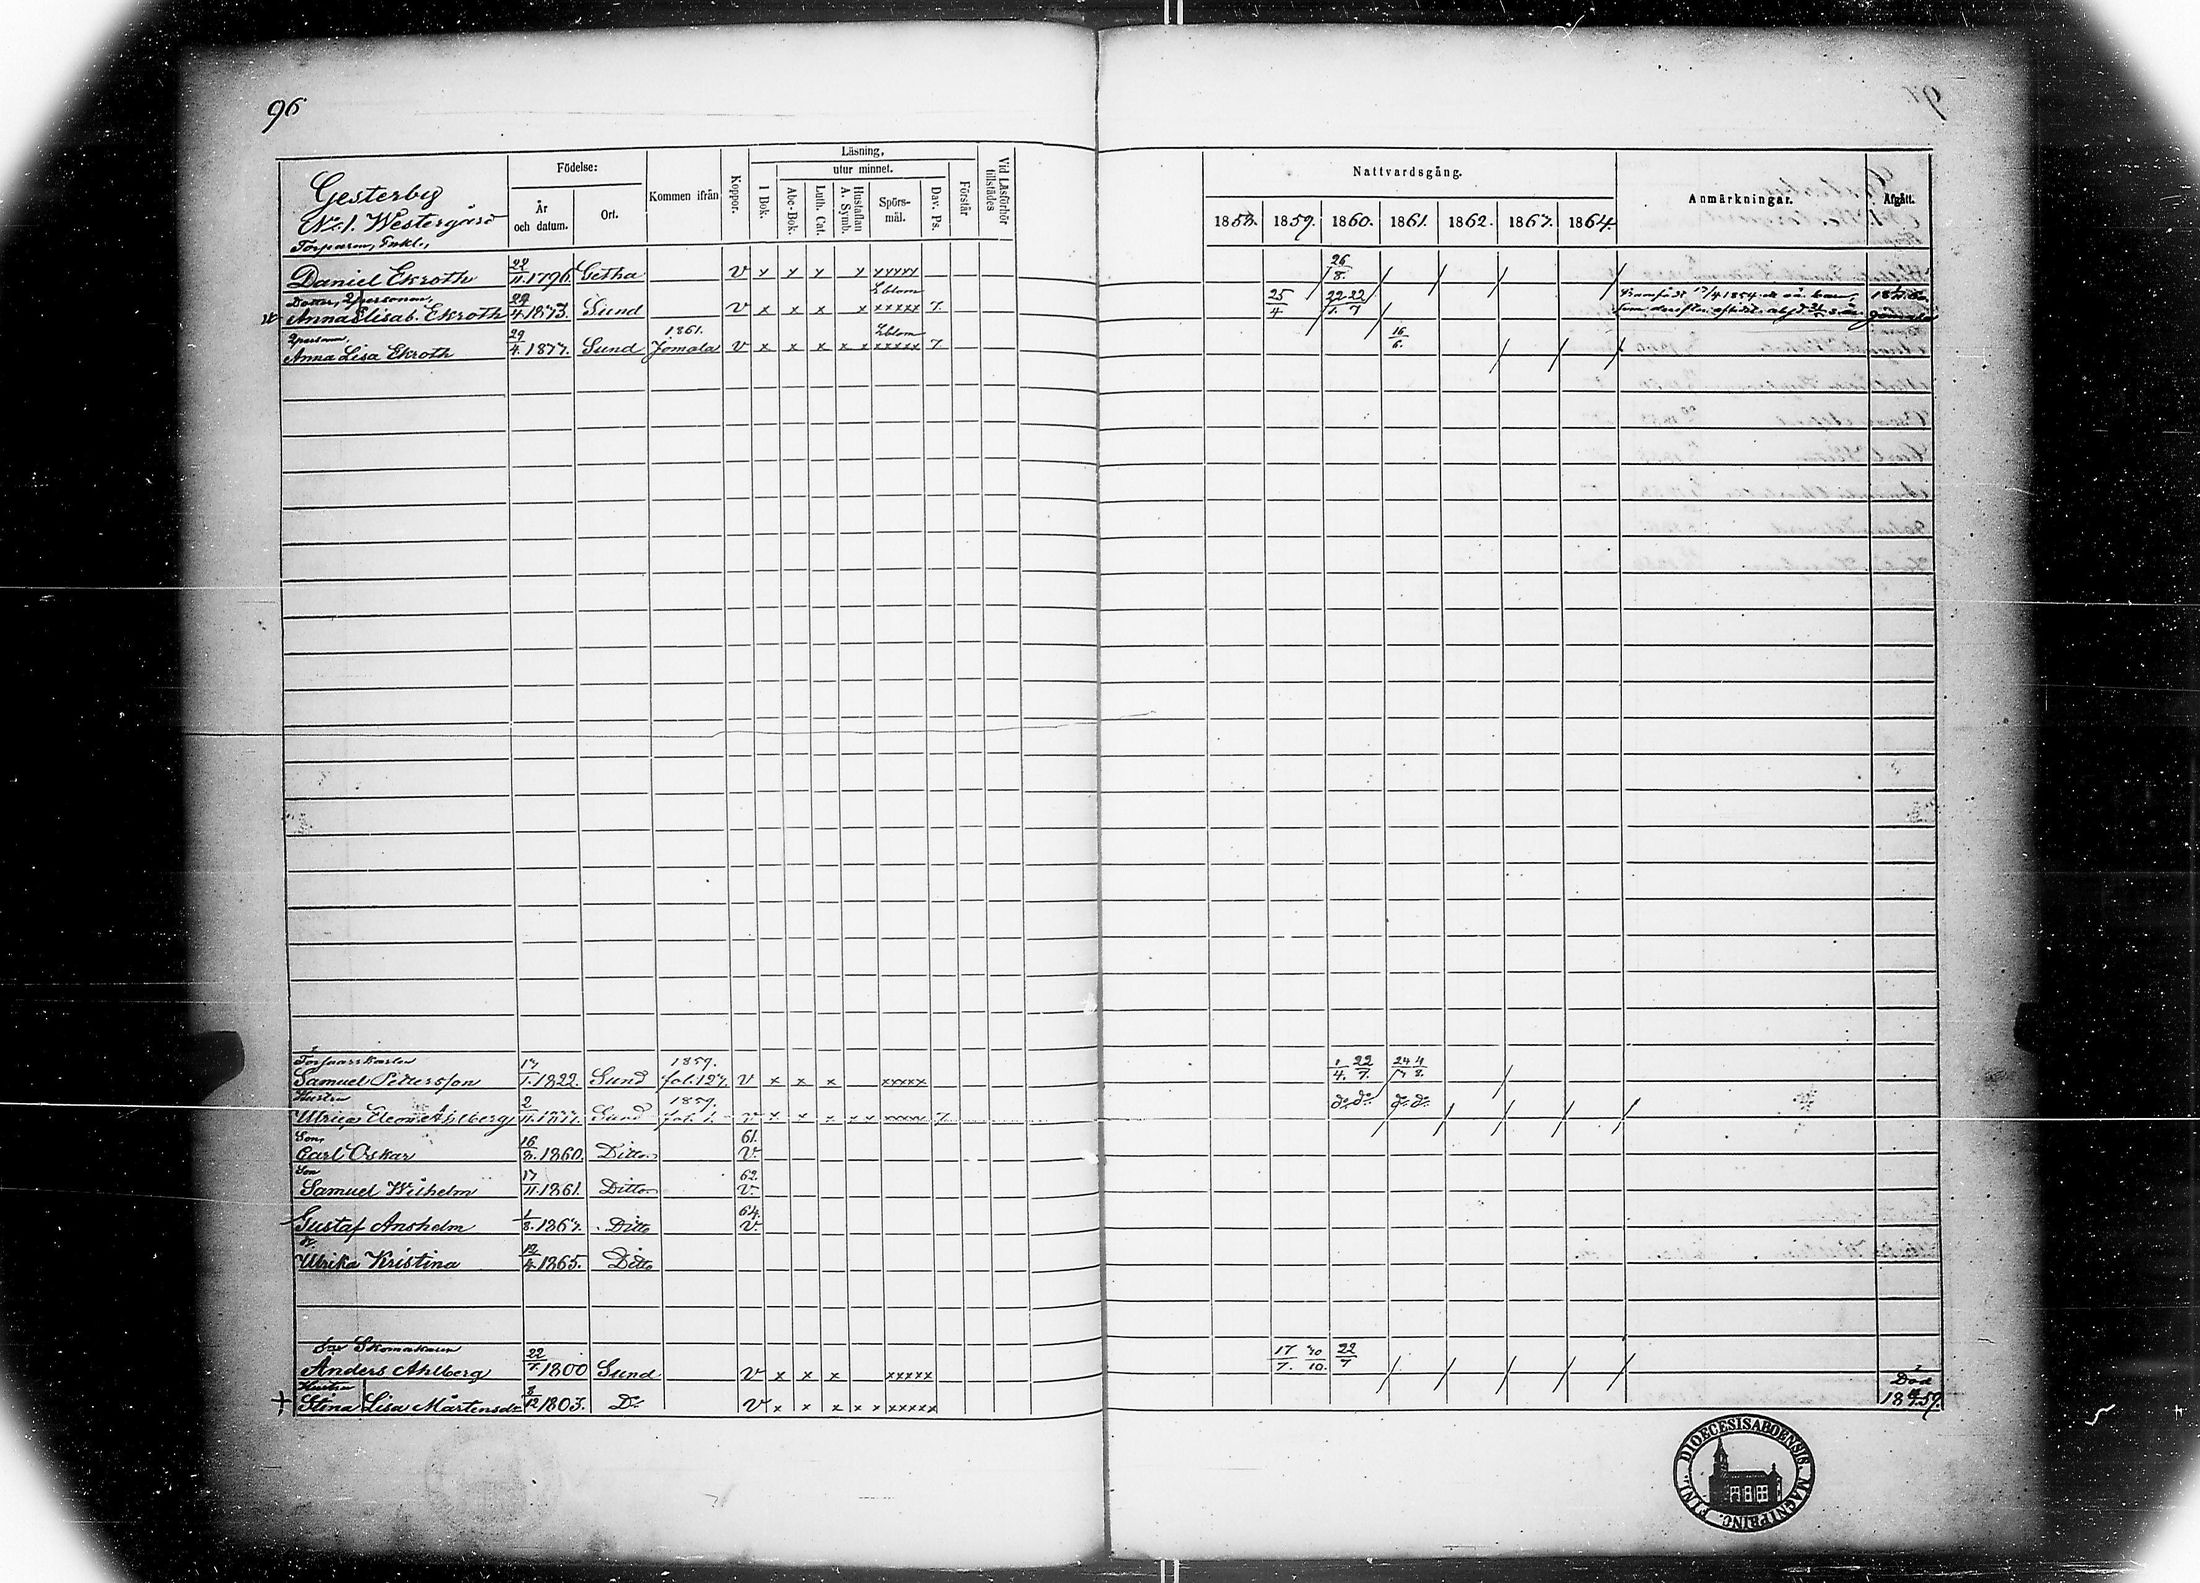 96
Gesterby
No. 1. Westergård
Torparen, Enkl.,
Födelse:
År och datum.
Ort.
Kommen ifrån
Koppor.
Läsning,
I Bok.
utur minnet.
Abc-Bok.
Luth. Cat.
Hustaflan A. Symb.
Spörs-mål.
Dav. Ps.
Förstår
Vid Läsförhör tillstädes
Nattvardsgång.
1858. 1859. 1860. 1861. 1862. 1863. 1864.
Anmärkningar.
Afgått.
Daniel Ekroth 22/11 1796. Getha v x x x x xxxxx 26/8.
Dotter, Qpersonen,
Anna Elisab. Ekroth 29/4 1833. Sund v x x x x xxxxx 7. 25/4 22/1. 22/7
Qperson,
Anna Lisa Ekroth 29/4. 1833. Sund 1861. Jomala v x x x x x xxxxx 7. 16/6.
Samuel Pettersson 17/1. 1822. Sund 1859. fol. 123. v x x x xxxxx 1/4. 22/7. 24/3 4/8.
Hustru
Ulrica Eleon. Ahlberg 2/11. 1833. Sund 1859. fol. 1. v x x x x x xxxxx 7. do do do do
Son,
Carl Oskar 16/3. 1860. Ditto 61. v.
Son
Samuel Wilhelm 17/11. 1861. Ditto 62. v.
Gustaf Anshelm 1/8. 1863. Ditto 64. v.
Ulrika Kristina 12/4. 1865. Ditto
Skomakaren
Anders Ahlberg 22/7. 1800 Sund v x x x xxxxx 17/7. 30/10. 22/7
Hustru
+ Stina Lisa Mårtensdr 8/12 1803. Do v x x x x x xxxxx Död 18 59.
DIOECESIS ABOENSIS. MAGNI PRINC. FINL.